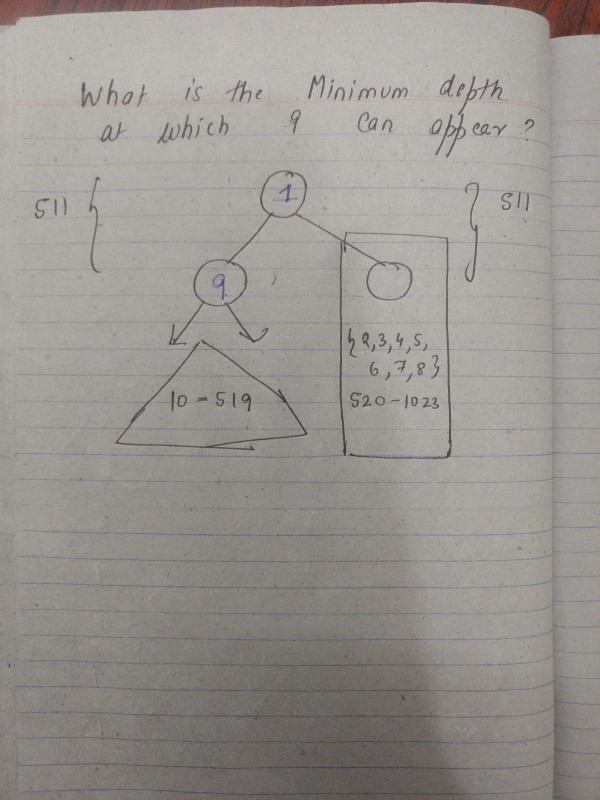 What is the Minimum depth
at which 9 can appear ?
511 { 1 } 511
9
{ 2, 3, 4, 5,
6, 7, 8 }
10 - 519
520 - 1023